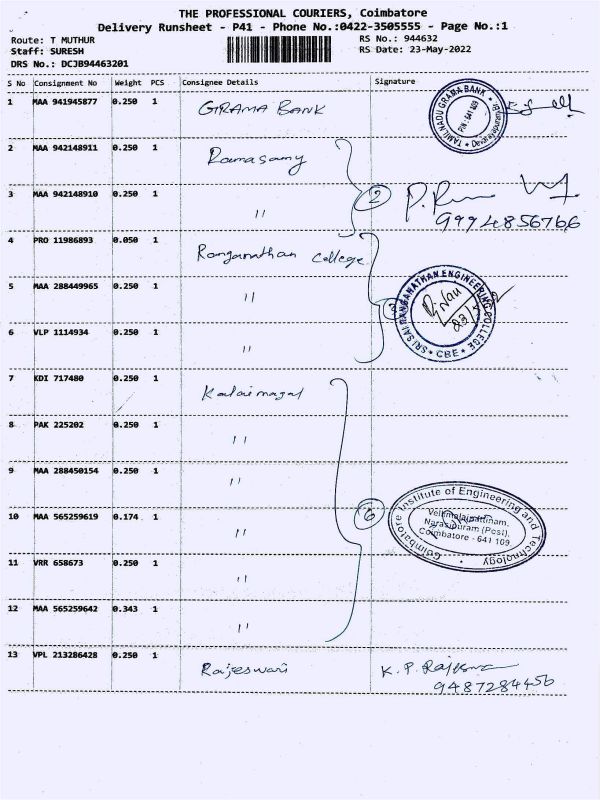 THE PROFESSIONAL COURIERS, Coimbatore
Delivery Runsheet - P41 - Phone No.:0422-3505555 - Page No.:1
Route: T MUTHUR
RS No.: 944632
Staff: SURESH
RS Date: 23-May-2022
DRS No.: DCJB94463201
S No Consignment No Weight PCS Consignee Details Signature
1 MAA 941945877 0.250 1 GRAMA BANK
TAMILNADU GRAMA BANK
PIN : 641 109
2 MAA 942148911 0.250 1 Ramasamy
3 MAA 942148910 0.250 1 "
2
9994856766
4 PRO 11986893 0.050 1 Ranganathan College
5 MAA 288449965 0.250 1 "
3
SRI SAI RANGANATHAN ENGINEERING COLLEGE
CBE
6 VLP 1114934 0.250 1 "
7 KDI 717480 0.250 1 Kalaimagal
8 PAK 225202 0.250 1 "
9 MAA 288450154 0.250 1 "
6
Coimbatore Institute of Engineering and Technology
Vellimalaipattinam,
Narasipuram (Post),
Coimbatore - 641 109
10 MAA 565259619 0.174 1 "
11 VRR 658673 0.250 1 "
12 MAA 565259642 0.343 1 "
13 VPL 213286428 0.250 1 Rajeswari K. P. Rajeswari
9487284456